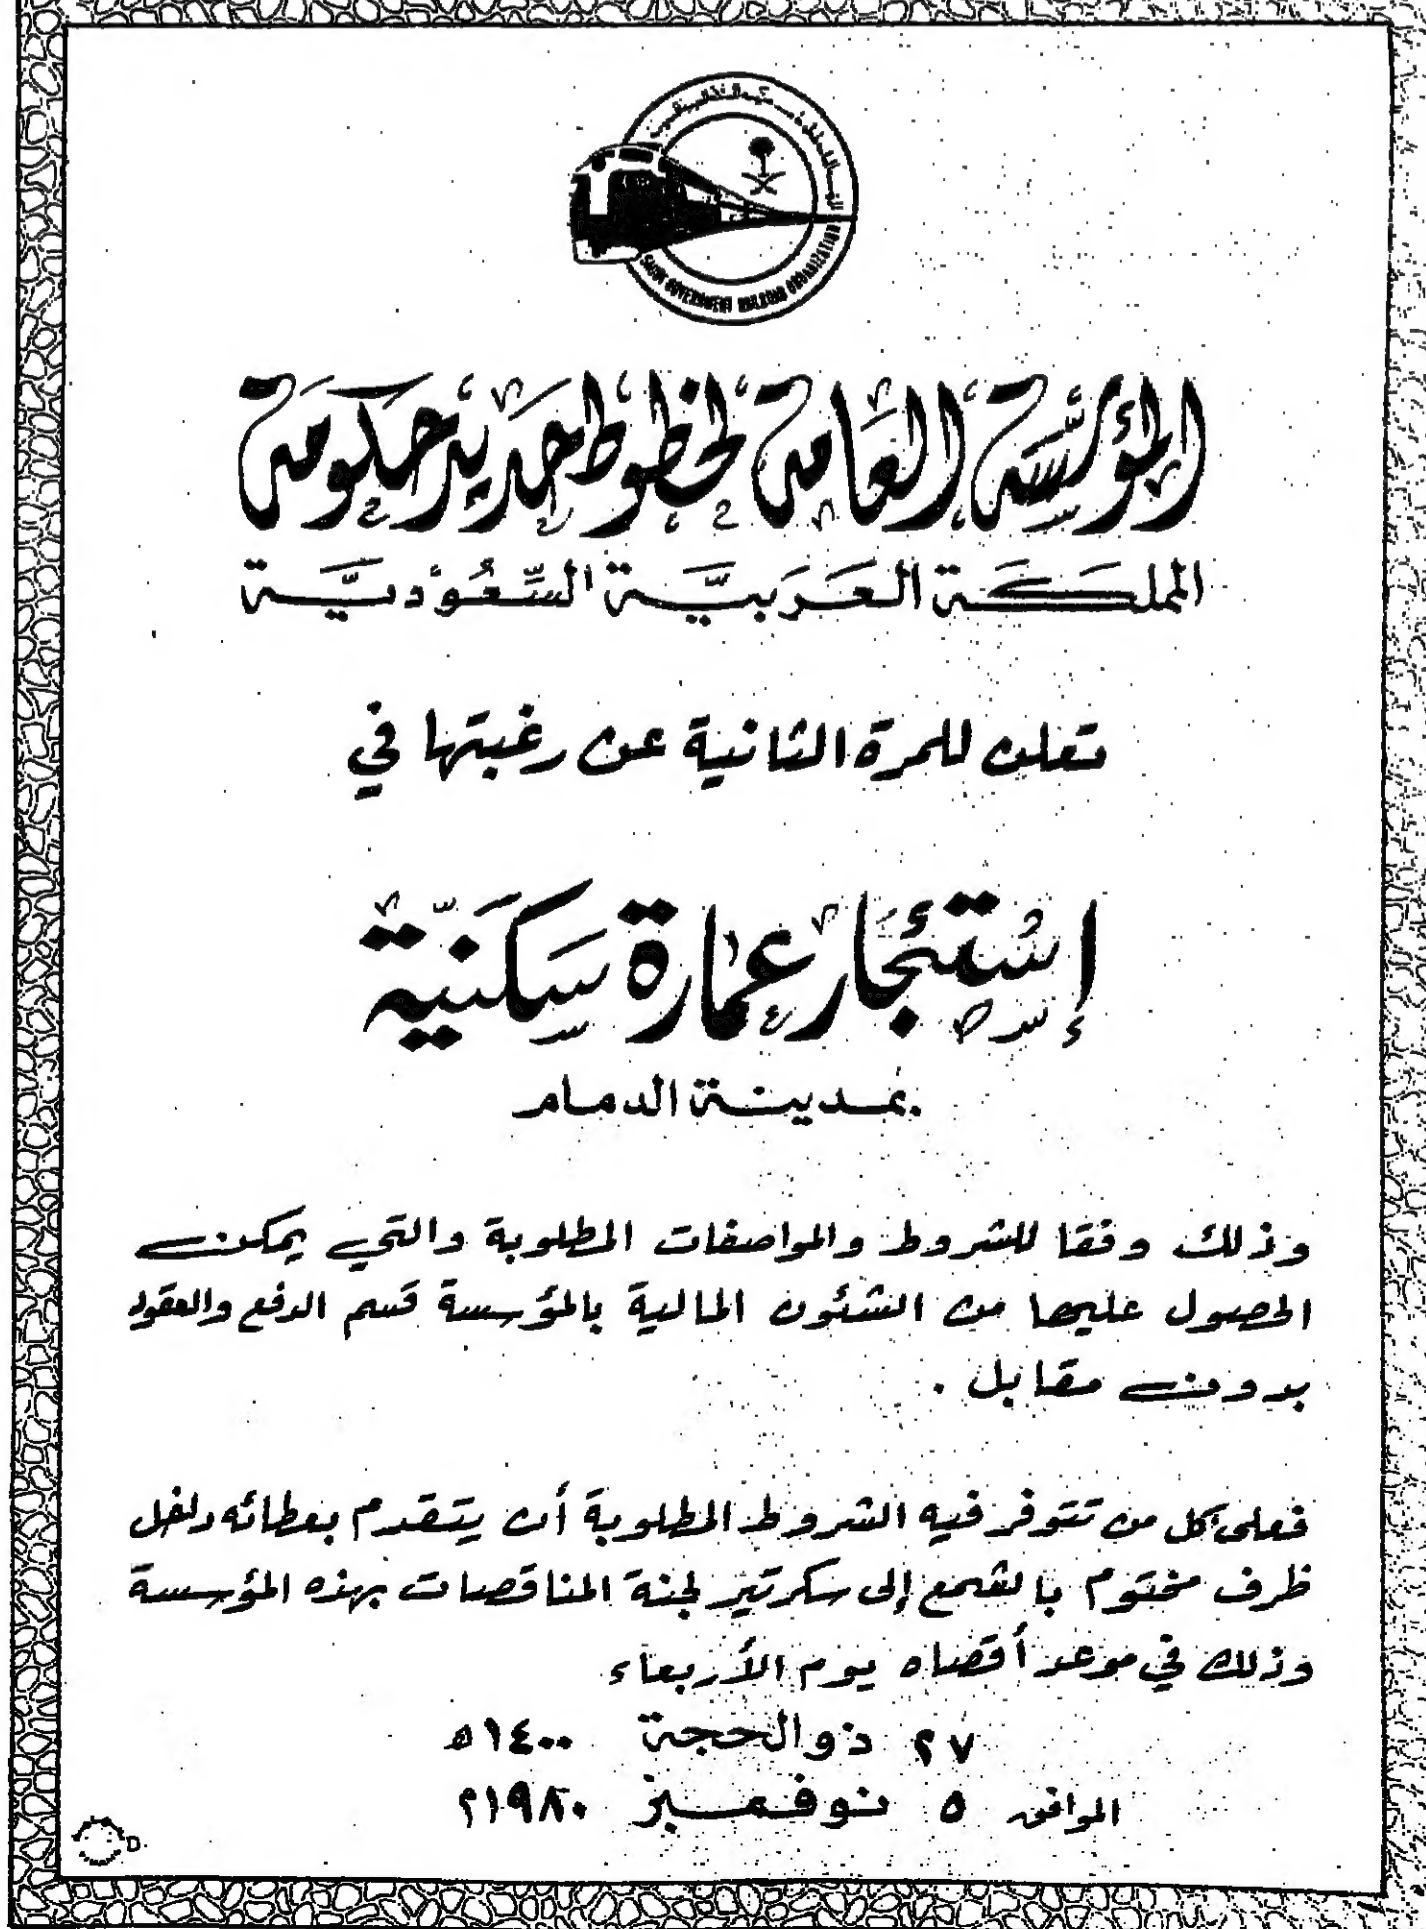 SAUDI GOVERNMENT RAILROAD ORGANIZATION
المؤسسة العامة لخطوط حديد حكومة
المملكة العربية السعودية
تعلن للمرة الثانية عن رغبتها في
إستئجار عمارة سكنية
بمدينة الدمام
وذلك وفقا للشروط والمواصفات المطلوبة والتي يمكن
الحصول عليها من الشئون المالية بالمؤسسة قسم الدفع والعقود
بدون مقابل .
فعلى كل من تتوفر فيه الشروط المطلوبة أن يتقدم بعطائه داخل
ظرف مختوم بالشمع إلى سكرتير لجنة المناقصات بهذه المؤسسة
وذلك في موعد أقصاه يوم الأربعاء
٢٧ ذوالحجة ١٤٠٠ه
الموافق ٥ نوفمبر ١٩٨٠م